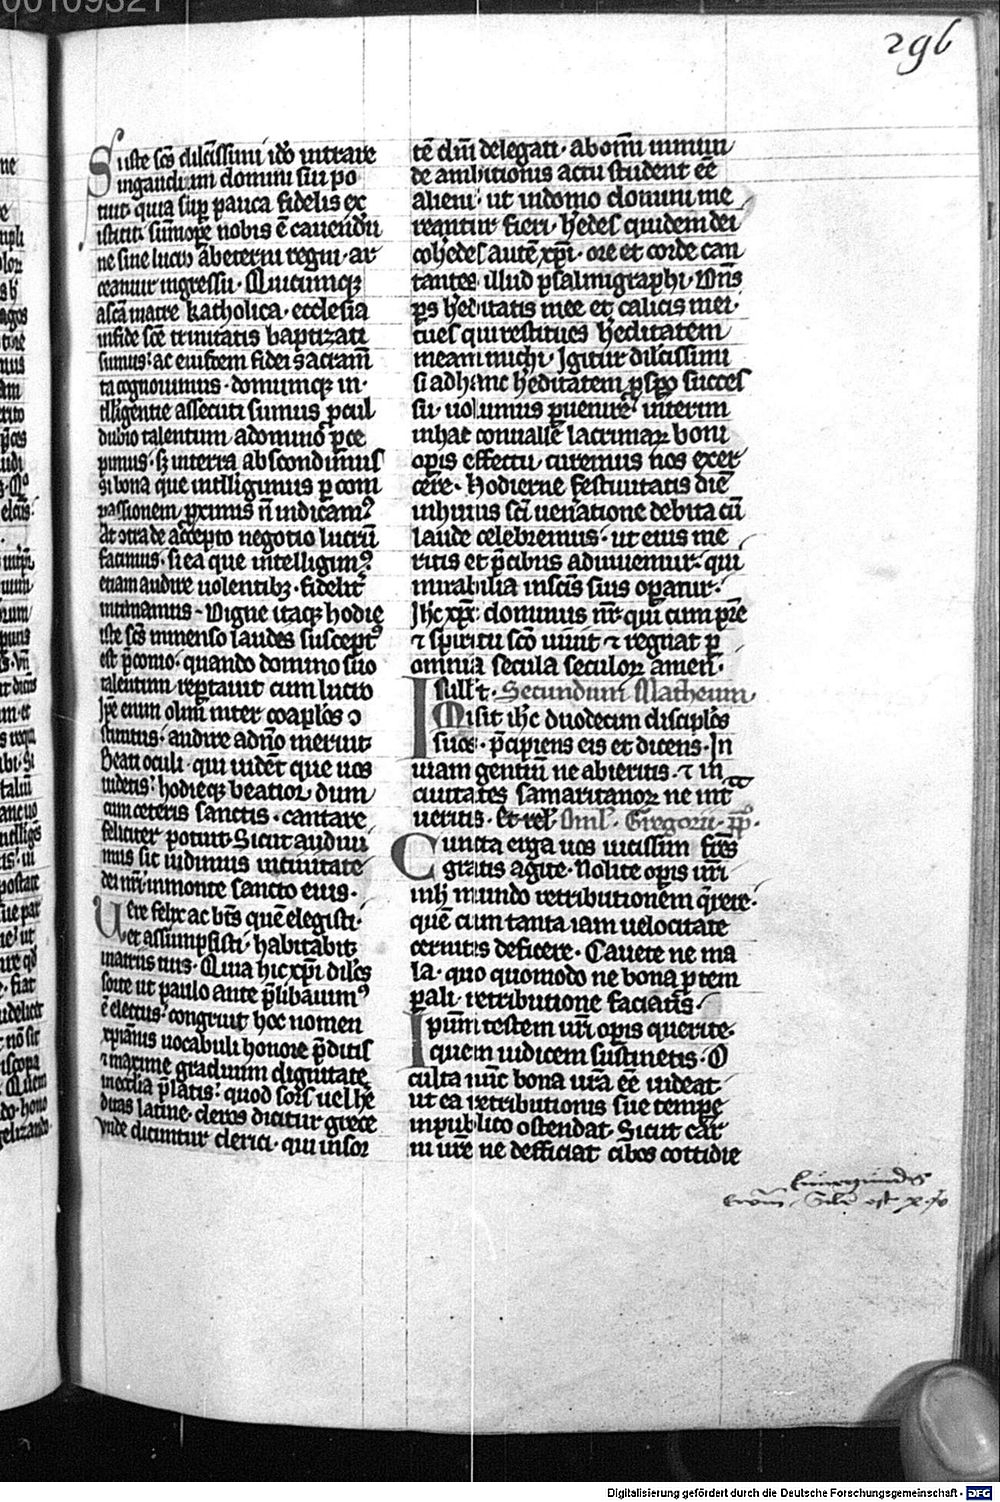 00109321
296
Iste scs dilcissimi ido intrare
in gaudium domini sui po
tuit quia sup pauca fidelis ex
istitit sumope nobis e cauendu
ne sine lucro ab eterni regni ar
ceamur ingressu. Quicumq
a sca matre katholica ecclesia
in fide sce trinitatis baptizati
sumus ac eiusdem fidei sacram
ta cognouimus donumq in
telligentie assecuti sumus pcul
dubio talentum a domino pce
pimus. sz in terra abscondimus
si bona que intelligimus p com
passionem pximis n indicam9
At de accepto negotio lucru
facimus. si ea que intelligim9
etiam audire uolentibz fidelit
intimamus. Digne itaq hodie
iste scs inmenso laudes suscept9
est pconio. quando domino suo
talentum reptauit cum lucro
Ipe enim olim inter coaplos
stitutus audire a dno meruit
Beati oculi qui uident que uos
uidetis. hodieq beatior dum
cum ceteris sanctis cantare
feliciter potuit Sicut audiui
mus sic uidimus in ciuitate
dei nri in monte sancto eius.
Uere felix ac bts que elegisti
et assumpsisti habitabit
in atriis tuis. Quia hic xpi dilcs
sorte ut paulo ante plibauim9
e electus congruit hoc nomen
xpianis uocabuli honore pditis
et maxime graduum dignitate
in ecclia platis. quod sors uel he
ditas latine cleros dicitur grece
Unde dicuntur clerici qui in sor
te dni delegati. ab omi inmun
de ambitionis actu student ee
alieni. ut in domo domini me
reantur fieri. hedes quidem dei
cohedes aute xpi. ore et corde can
tantes illud psalmigraphi. Dns
ps heditatis mee et calicis mei
tu es qui restitues heditatem
meam michi. Igitur dilcissimi
si ad hanc heditatem pspo succes
su uolumus puenire interim
in hac conualle lacrimarum boni
opis effectu curemus nos exer
cere. Hodierne festiuitatis die
in huius sci ueneratione debita cu
laude celebremus. ut eius me
ritis et pcibus adiuuemur. qui
mirabilia in scis suis opatur.
Ihc xpc dominus nr. qui cum pre
et spiritu sco uiuit et regnat p
omnia secula seculor amen.
Secundum Matheum
Misit ihc duodecim discipulos
suos. pcipiens eis et dicens. In
uiam gentiu ne abieritis. et in
ciuitates samaritanor ne int
ueritis. Et rel. Omł. Gregorii pp.
Cuncta erga uos uicissim fres
gratis agite. Nolite opis uri
in h mundo retributionem qrere.
que cum tanta iam uelocitate
cernitis deficere. Cauete ne ma
la quo quomodo ne bona p tem
pali retributione faciatis.
Ipsum testem uri opis querite.
quem iudicem sustinetis. O
culta nuc bona ura ee uideat
ut ea retributionis sue tempe
in publico ostendat. Sicut car
ni ure ne defficiat cibos cottidie
Digitalisierung gefördert durch die Deutsche Forschungsgemeinschaft - DFG